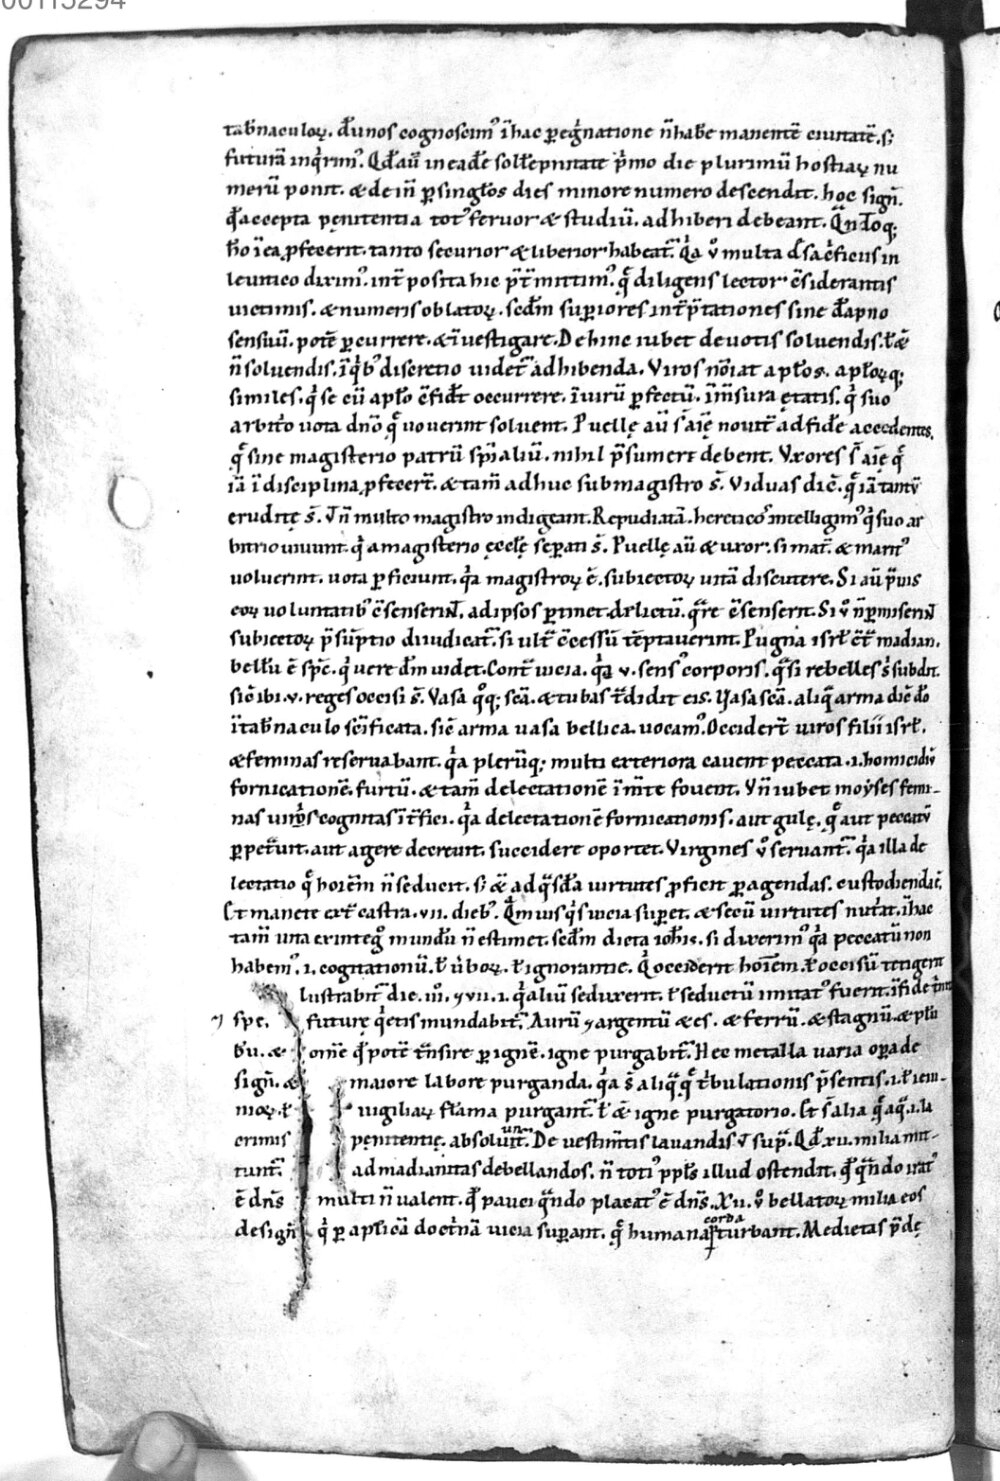 00115294
tab̄naculoꝝ. đ nos cognoscim᾽ ī hac ꝑegⁱnatione n̄ hab̄e manentē ciuitatē. s;
futurā inqⁱrim᾽. Qđ aū in eadē sollēpnitate pⁱmo die plurimū hostiaꝝ nu
merū ponit. & dein̄ ꝑ singłos dies minore numero descendit. hoc sign̄.
qđ accepta pęnitentia tot᾽ feruor & studiū. adhiberi debeant. Qn̄do q;
ħo ī ea ꝓfecerit. tanto securior & liberior habeat᷑. qⁱa v᾽ multa đ sacⁱficiis in
leuitico dixim᾽. int̄ posita hic p̄t̄mittim᾽. q̄ diligens lector c̄siderantis
uictimis. & numeris oblatoꝝ. scđm superiores int̄p̄tationes sine đ apno
sensuū. potē ꝑcurrere. & īuestigare. Dehinc iubet de uotis soluendis. ł &
n̄ soluendis. ī qⁱb᾽ discretio uidet᷑ adhibenda. Viros nōīat apłos. apłoꝝq;
similes. qⁱ se cū apło c̄fidt̄ occurrere. ī uirū ꝑfectū. ī m̄sura ętatis. qⁱ suo
arbitⁱo uota dn̄o q̄ uouerint soluent. Puellę aū s̄ aīę nouit᷑ ad fidē accedentes.
q̄ sine magisterio patrū sp̄ialiū. nihil p̄sumere debent. Vxores s̄ aīę q̄
iā ī disciplina ꝓfecer̄t. & tam̄ adhuc sub magistro s̄. Viduas dic̄. q̄ iā tantū
eruditę s̄. ł n̄ multo magistro indigeant. Repudiatā. hereticos intelligim᾽ qⁱ suo ar
bitrio uiuunt. qⁱ a magisterio ęcclę seꝑati s̄. Puellę aū & uxor. si mat̄. & marit᾽
voluerint. uota ꝑficiunt. qⁱa magistroꝝ ē. subiectoꝝ uitā discutere. Si aū p̄uis
eoꝝ uoluntatib᾽ c̄senserint̄. ad ipsos ꝑtinet delictū. q̄re c̄senserit. Si v᾽ n̄ ꝑmiserint̄
subiectoꝝ p̄sūptio diiudicat᷑. si ult̄ c̄cessū tēptauerint. Pugna isrł c̄t̄ madian.
bellū ē sp̄c. qⁱ uere dm̄ uidet. cont̄ uicia. q̄ v. sens᾽ corporis. q̄si rebelles s̄ subdit.
sic̄ ibi .v. reges occisi s̄. Vasa qͦq; scā. & tubas t̄didit eis. Vasa scā. aliq̄ arma dic̄ đo
ī tab̄naculo sc̄ificata. sic̄ arma uasa bellica. uocam᾽. Occider̄t uiros filii isrł.
& feminas reseruabant. qⁱa plerūq; multi exteriora cauent peccata .i. homicidiū
fornicationē. furtū. & tam̄ delectationē ī m̄te fouent. Vn̄ iubet moẏses femi-
nas uiris cognitas īt̄fici. qⁱa delectationē fornicationis. aut gulę. q̄ aut peccatū
ꝑpet̄uit. aut agere decreuit. succidere oportet. Virgines v᾽ seruant᷑. qⁱa illa de
lectatio q̄ hoīem n̄ seducit. s; & ad q̄sdā uirtutes ꝓficit ꝑagendas. custodienda ē.
Et manete ext̄ castra .vii. dieb᾽. Q̄muis qⁱs uicia suꝑet. & secū uirtutes nut̄at. ī hac
tam̄ uita ex integͦ mundū n̄ estimet. scđm dicta ioħis. si dixerim᾽ qⁱa peccatū non
habem᾽ .i. cogitationū. ł ūboꝝ. ł ignorantie. Qⁱ occiderit hoīem. ł occisū tetigerit
lustrabit᷑ die .iii. ⁊ vii. .i. qⁱ aliū seduxerit. ł seductū imitat᾽ fuerit. ī fide t̄nit
⁊ spe. future qⁱetis mundabit᷑. Aurū ⁊ argentū & es. & ferrū. & stagnū. & plū
b̄u. & om̄e qđ potē t̄nsire ꝑ ignē. igne purgabit᷑. Hec metalla uaria oꝑa de
sign̄. & maiore labore purganda. qⁱa s̄ aliq̄ q̄ t̄bulationis p̄sentis .i. ł ieiu-
nioꝝ. ł vigiliaꝝ flāma purgant᷑. ł & igne purgatorio. Et s̄ alia q̄ aq̄ .i. la
crimis pęnitentię. absoluunt᷑. De uestim̄tis lauandis ł sup̄. Qđ xii. milia mit-
tunt᷑ ad madianitas debellandos. n̄ toti᾽ ppłs illud ostendit. qđ q̄ndo irat᾽
ē dn̄s multi n̄ valent. qđ pauci q̄ndo placat᾽ ē dn̄s. Xii. v᾽ bellatoꝝ milia eos
design̄ qⁱ ꝑ aplicā doct̄nā uicia suꝑant. q̄ humana corda ꝑturbant. Medietas p̄dę